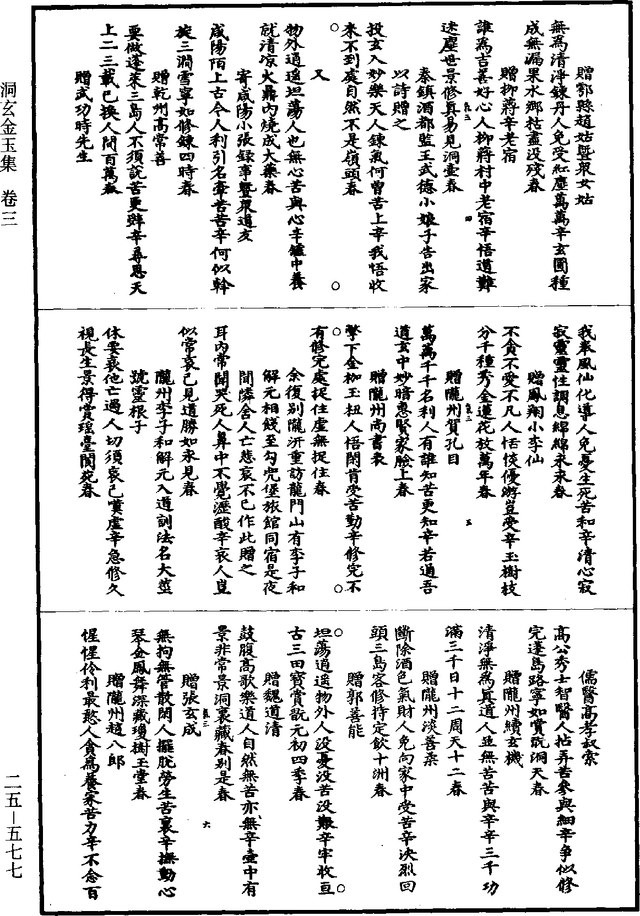 贈鄠縣趙姑暨衆女姑
無為清淨鍊丹人免受紅塵萬萬辛玄圃種
成無漏果水鄉枯盡没殘春
贈柳蔣辛老宿
誰為吉善好心人柳蔣村中老宿辛悟道難
迷塵世景修真易見洞壺春
秦鎮酒都監王武德小娘子告出家
以詩贈之
投玄入妙樂天人鍊氣何曾苦上辛我悟收
來不到處自然不是嶺頭春
又
物外逍遥坦蕩人也無心苦與心辛爐中養
就清凉火鼎内燒成大藥春
寄咸陽小張録事暨衆道友
咸陽陌上古今人利引名牽苦苦辛何似幹
旋三澗雪寧如修鍊四時春
贈乾州高常善
要做蓬萊三島人不須説苦更辭辛尋思天
上二三載已換人間百萬春
贈武功時先生
我奉風仙化導人免憂生死苦和辛清心寂
寂靈靈性調息綿綿永永春
贈鳳翔小李仙
不貪不愛不凡人恬惔優游豈受辛玉樹枝
分千種秀金蓮花放萬年春
贈隴州賀孔目
萬萬千千名利人有誰知苦更知辛若通吾
道玄中妙暗惠賢家臉上春
贈隴州尚書表
擎下金枷玉杻人悟閑肯受苦勤辛修完不
有修完處捉住虛無捉住春
余復别隴汧重訪龍門山有李子和
解元相餞至勾兜堡旅館同宿是夜
間隣舍人亡悲哀不已作此贈之
耳内常聞哭死人鼻中不覺瀝酸辛哀人豈
似常哀己見道勝如永見春
隴州李子和解元入道訓法名大莖
號靈根子
休要哀他亡過人切須哀己實虛辛急修久
視長生景得賞瑶臺閬苑春
儒醫高孝叔索
高公秀士智醫人拈弄苦參與細辛爭似修
完蓬島路寧如賞翫洞天春
贈隴州續玄機
清淨無為真道人並無苦苦與辛辛三千功
滿三千日十二周天十二春
贈隴州淡善柔
斷除酒色氣財人免向家中受苦辛决烈回
頭三島客修持定飲十洲春
贈郭善能
坦蕩逍遥物外人没憂没苦没艱辛牢收亘
古三田寶賞翫元初四季春
贈魏道清
鼓腹高歌樂道人自然無苦亦無辛壺中有
景非常景洞裏藏春别是春
贈張玄成
無拘無管散閑人擺脱勞生苦裏辛撫動心
琴金鳳舞深藏瓊樹玉堂春
贈隴州趙八郎
惺惺伶利最憨人貪爲養家苦力辛不念百
洞玄金玉集　卷三
二五－五七七